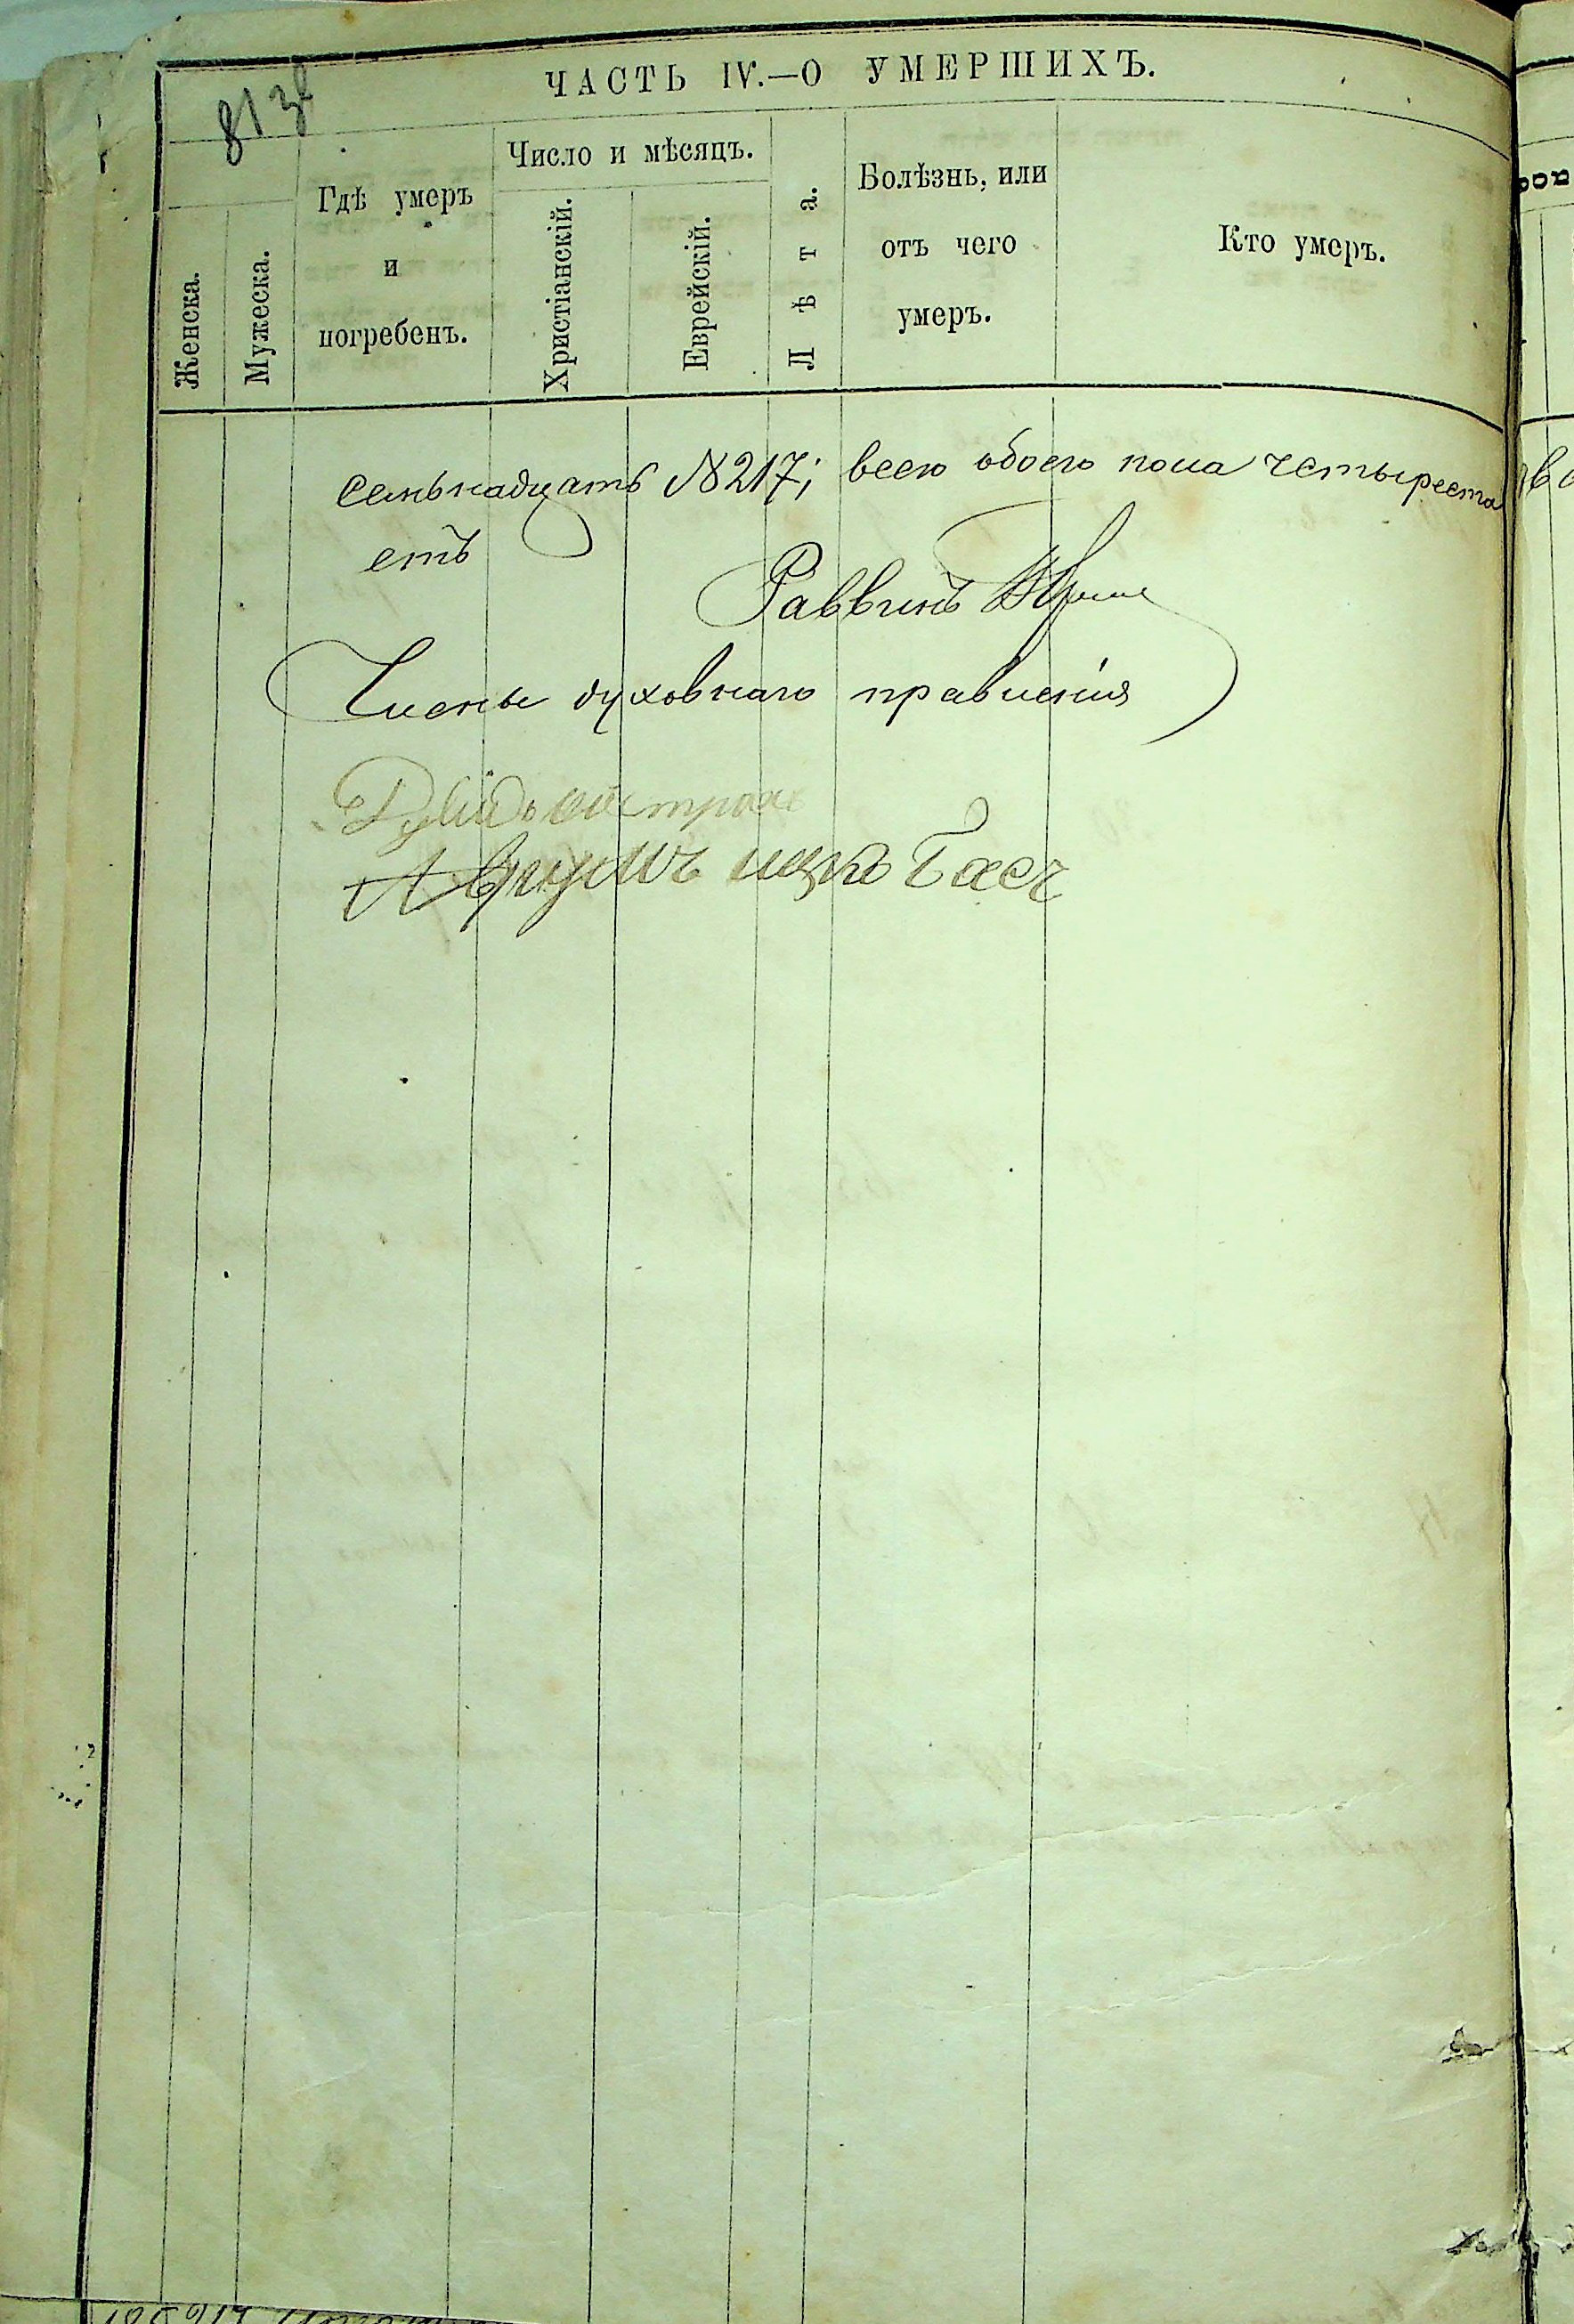 813
ЧАСТЬ IV.—О УМЕРШИХЪ.
Женска.
Мужеска.
Гдѣ умеръ
и
погребенъ.
Число и мѣсяцъ.
Христіанскій.
Еврейскій.
Лѣта.
Болѣзнь, или
отъ чего
умеръ.
Кто умеръ.
семьнадцать №217; всего обоего пола четыреста
Раввинъ
Члены духовнаго правления